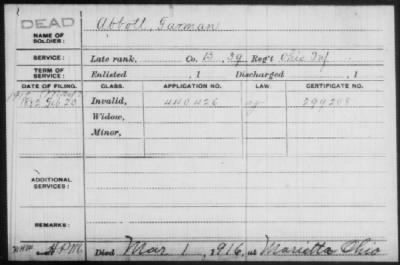 DEAD
NAME OF SOLDIER: Abbott, Tarman
SERVICE: Late rank, Co. B, 39 Reg't Ohio Inf
TERM OF SERVICE: Enlisted , 1 Discharged , 1
DATE OF FILING. CLASS. APPLICATION NO. LAW. CERTIFICATE NO.
1882 Feb. 20 Invalid, 440426 299208
Widow,
Minor,
ADDITIONAL SERVICES:
REMARKS:
Died Mar 1, 1916, at Marietta Ohio